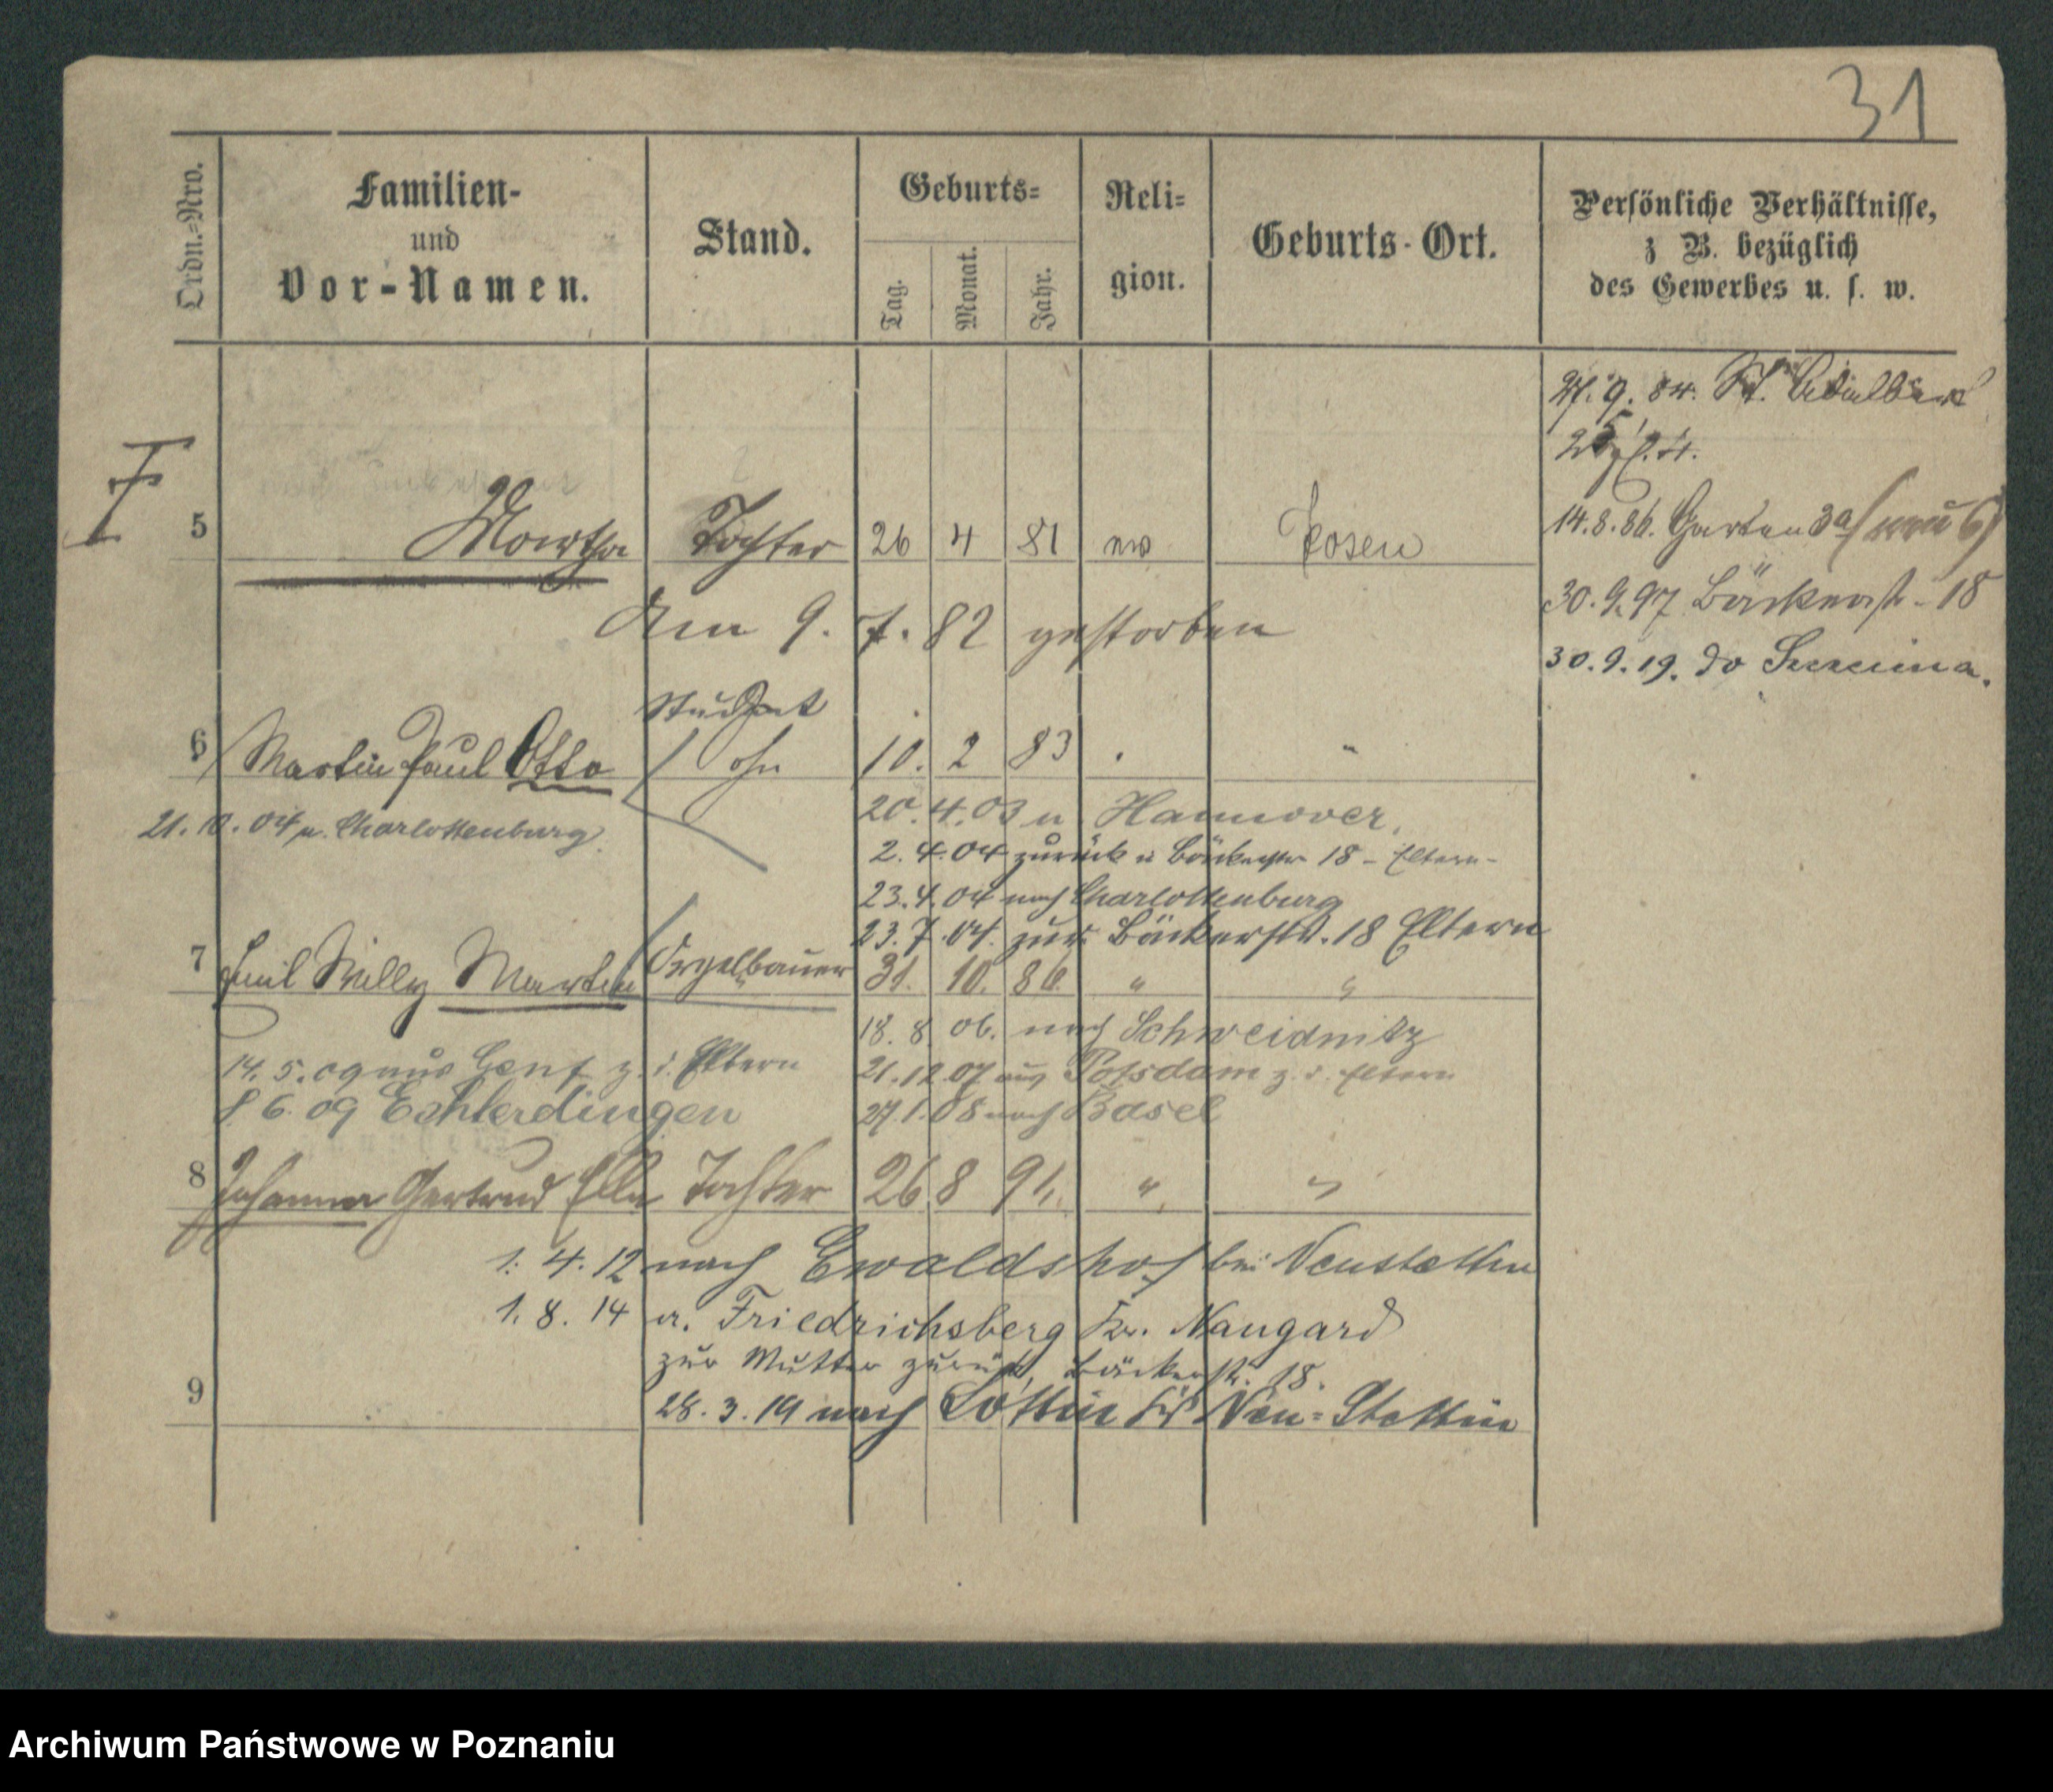 31
Ordn.-Nro.
Familien-
und
Vor-Namen.
Stand.
Geburts-
Tag.
Monat.
Jahr.
Reli-
gion.
Geburts-Ort.
Persönliche Verhältnisse,
z B. bezüglich
des Gewerbes u. s. w.
9. 84. St. Adalbert
14.8.86. Garten 3a (neu 6)
30.9.97 Bäckerstr. 18
30.9.19. do
5 Martha Tochter 26 4 81 ev Posen
Am 9. 7. 82 gestorben
Student
6 Martin Paul Otto Sohn 10. 2 83 " "
21. 10. 04 n. Charlottenburg.
20.4.03 n Hannover,
2.4.04 zurück n Bäckerstr 18 - Eltern -
23.4.04 nach Charlottenburg
23.7.04. zur. Bäckerstr. 18 Eltern
7 Emil Willy Martin Orgelbauer 31. 10. 86. " "
18. 8. 06. nach Schweidnitz
14. 5. 09 aus Genf z. d. Eltern
21.12.07 aus Potsdam z. d. Eltern
8. 6. 09 Echterdingen
27.1.08 nach Basel
8 Johanna Gertrud Ella Tochter 26 8 91. " "
1. 4. 12 nach Ewaldshof bei Neustettin
1. 8. 14 a. Friedrichsberg Kr. Naugard
zur Mutter zurück, Bäckerstr. 18.
9
28. 3. 19 nach Lottin Kr Neu-Stettin
Archiwum Państwowe w Poznaniu